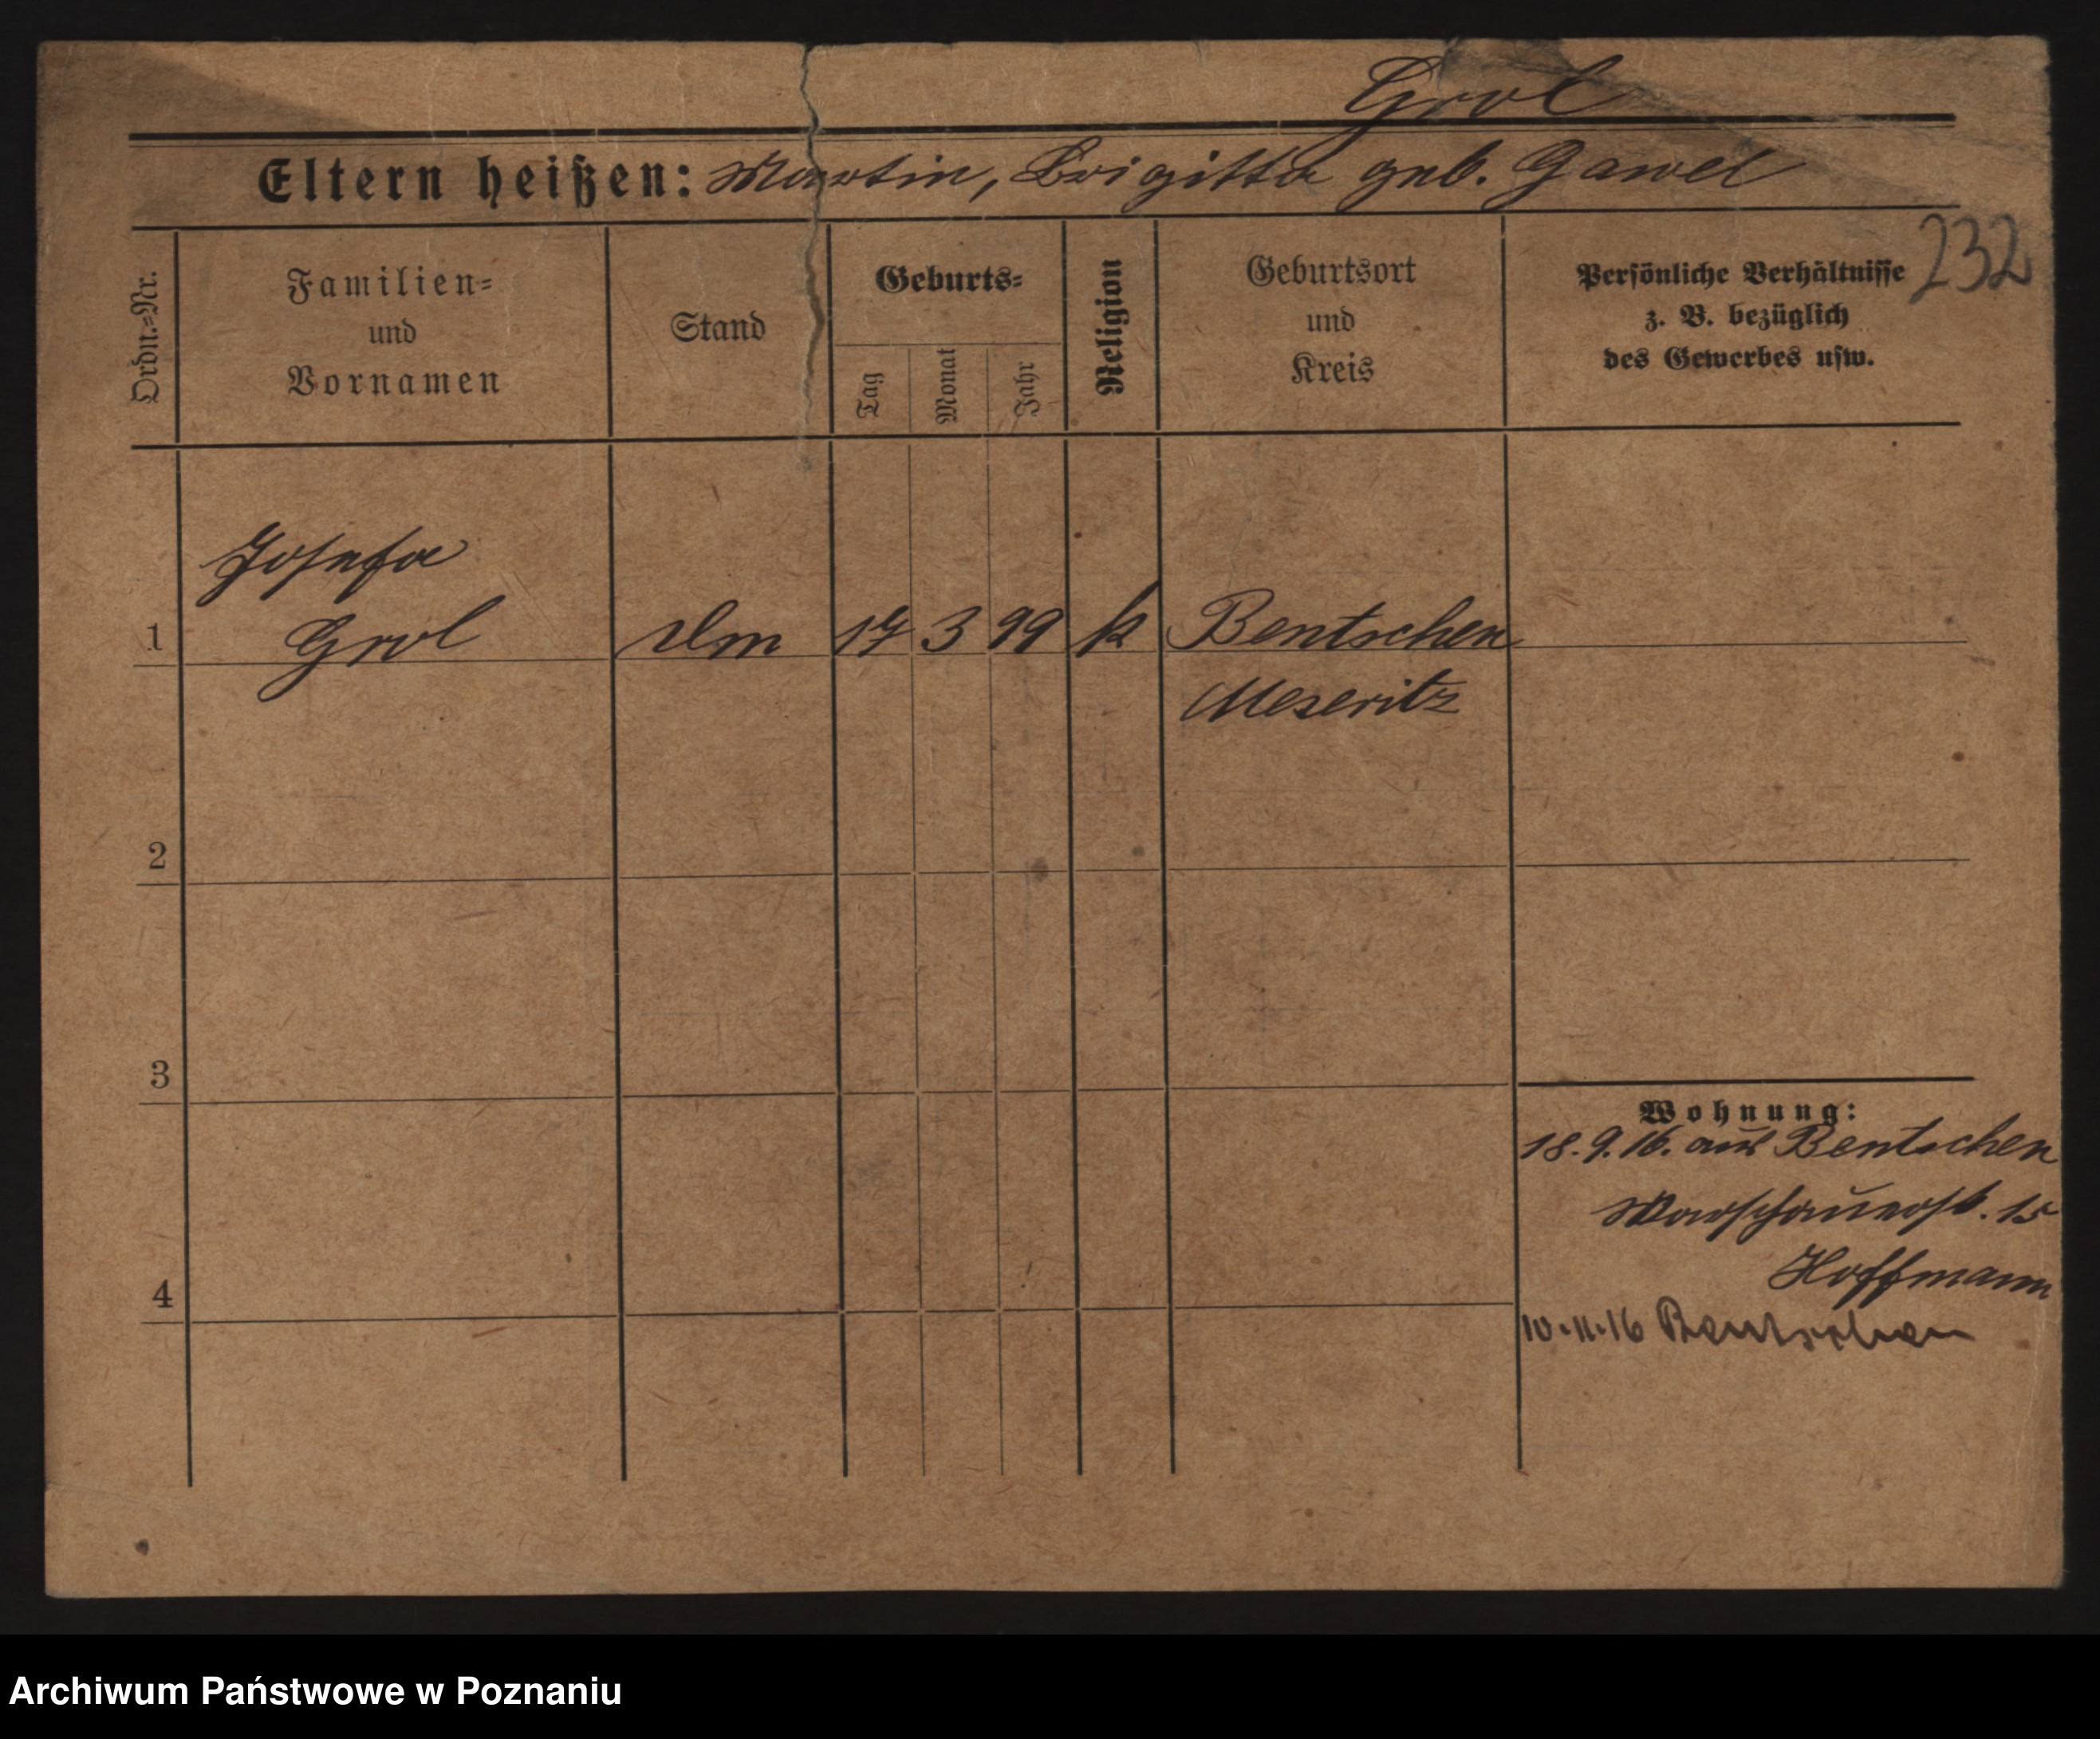 Grol
Eltern heißen: Martin, Brigitta geb. Gawel
232
Ordn.=Nr.
Familien=
und
Vornamen
Stand
Geburts=
Tag
Monat
Jahr
Religion
Geburtsort
und
Kreis
Persönliche Verhältnisse
z. B. bezüglich
des Gewerbes usw.
Josefa
1 Grol Dm 17 3 99 k Bentschen
Meseritz
2
3
Wohnung:
18.9.16. aus Bentschen
Warschauerst. 15
Hoffmann
4
10.11.16 Bentschen
Archiwum Państwowe w Poznaniu